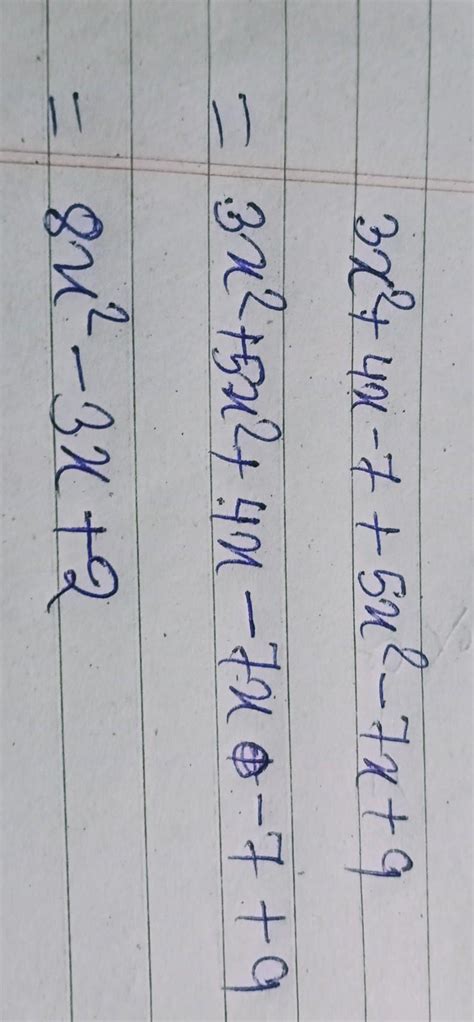 3x²+4x-7+5x²-7x+9
= 3x²+5x²+4x-7x-7+9
= 8x²-3x+2